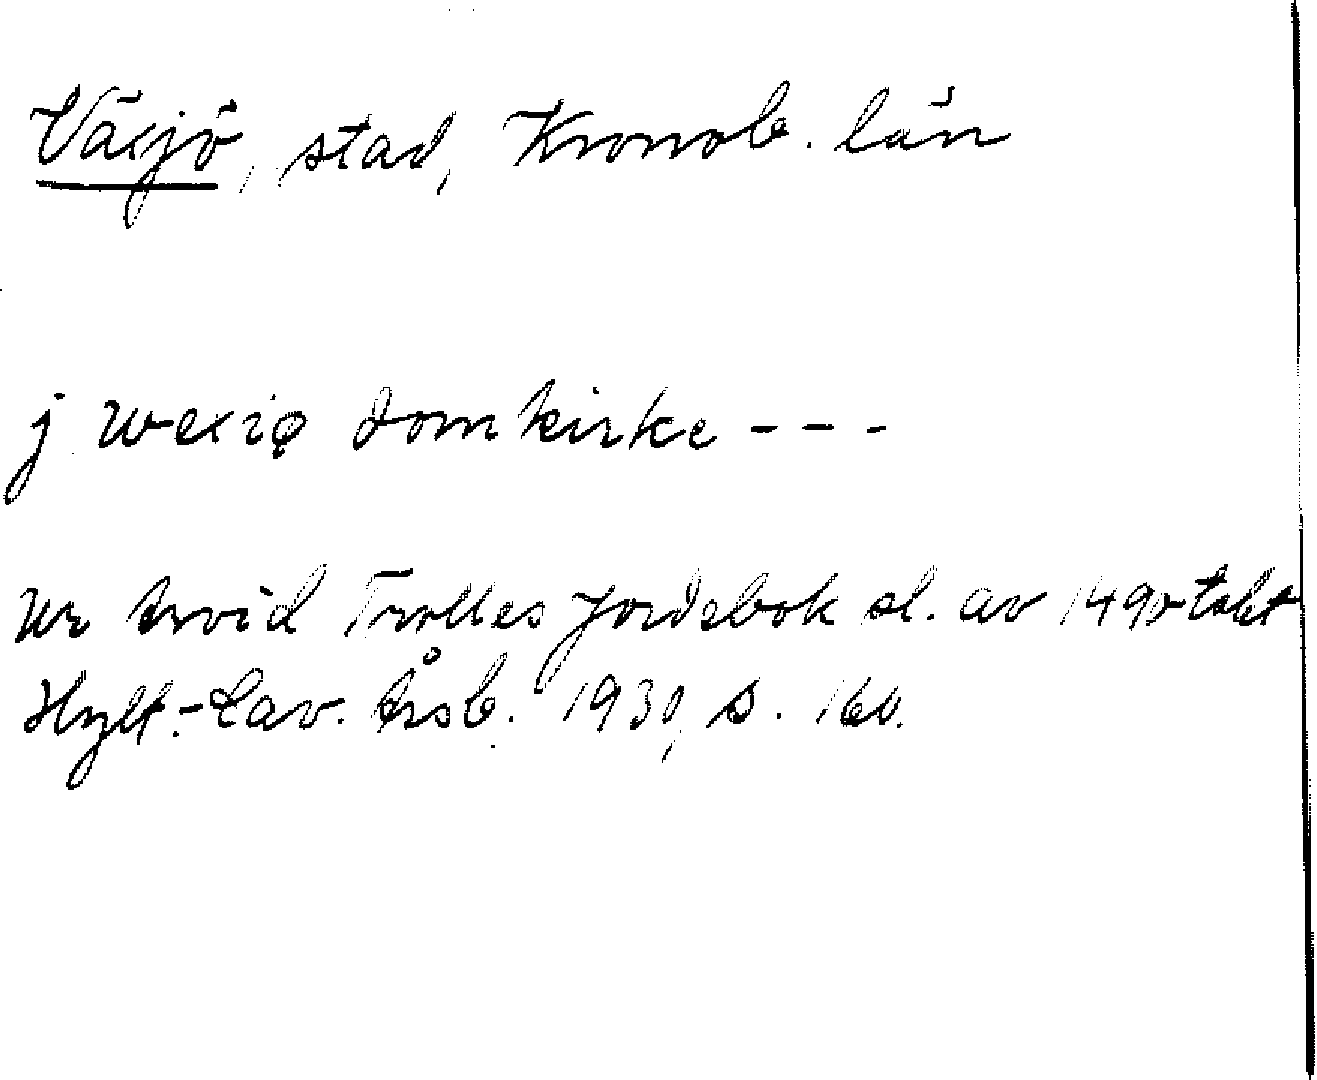 Växjö, stad, Kronob. län
j wexiø domkirke ---
Ur Arvid Trolles jordebok sl. av 1490 talet
Hylt.-Cav. Årsb. 1930, s. 160.